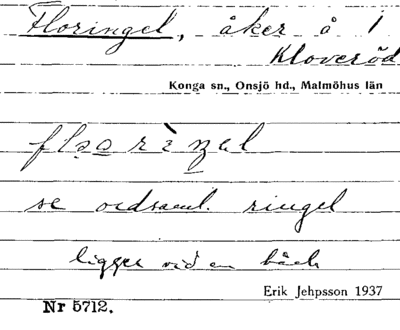 Floringel, åker å 1
Kloveröd
Konga sn., Onsjö hd., Malmöhus län
se ordsaml. ringel
ligger vid en bäck
Erik Jehpsson 1937
Nr 5712.